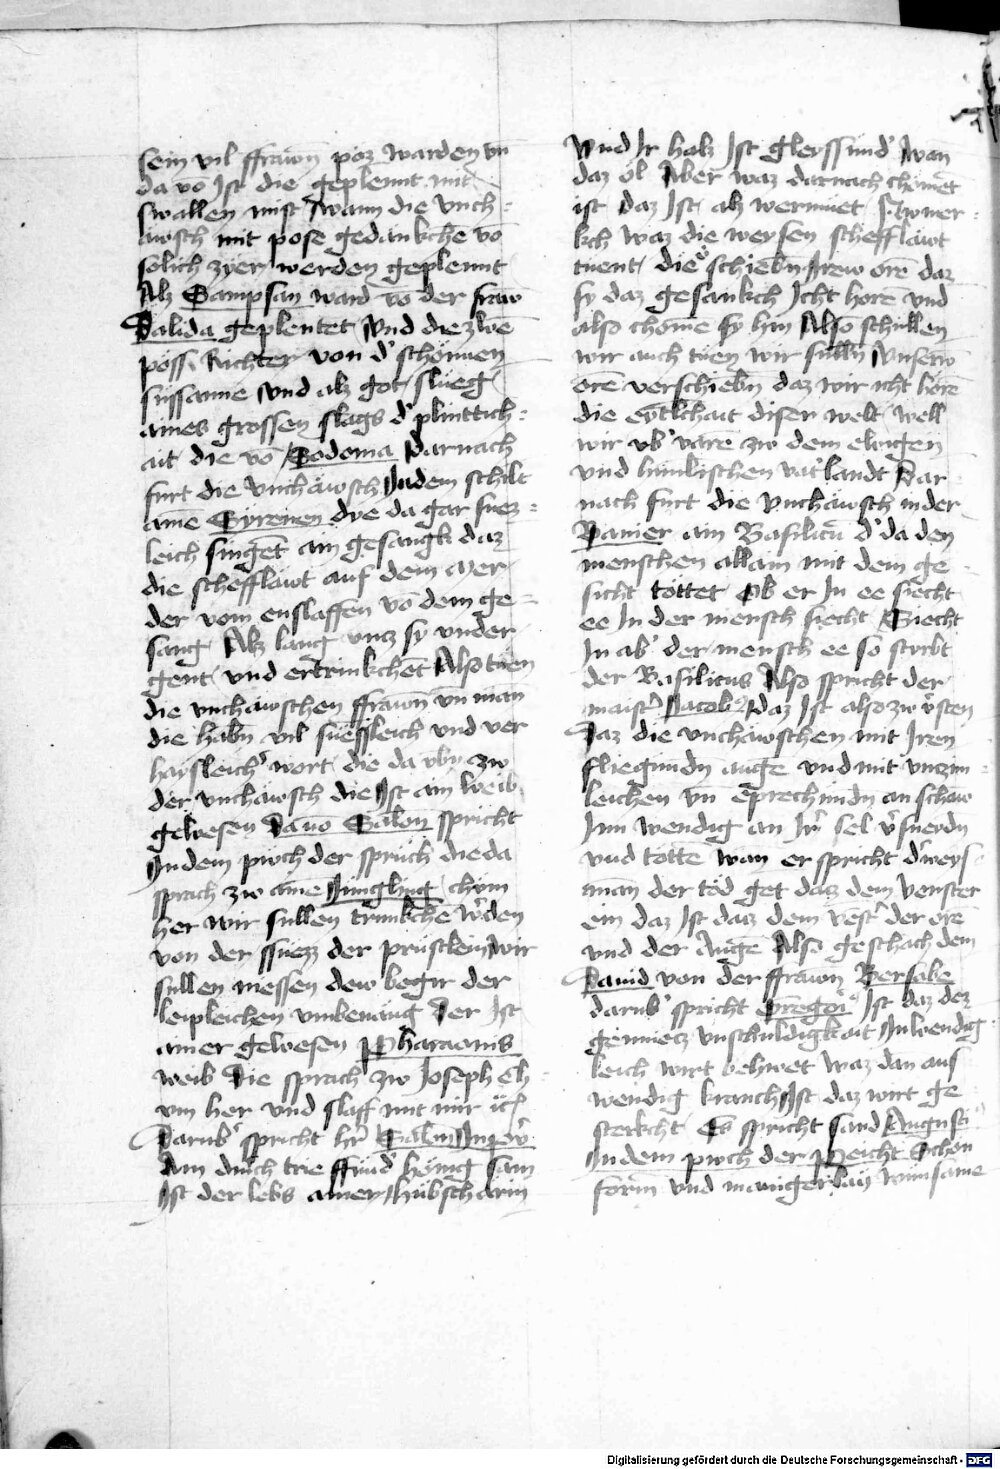 sein vil ffrawn poz warden vn
da vo Ist die geplennt mit
swallen mist Wann die vnch=
äwsch mit pose gedankche vo
solich zyer werden geplennt
Alz Sampson ward vo der fraw
Dalida geplentet Vnd die zwe
possn Richter von d' schonnen
sussanne Vnd alz got slueg
aines grossen slags d' plinttich=
ait die vo Sodoma Darnach
furt die vnchäwsch In dem schilt
ame Syrenen dye da gar suez=
leich singet ain gesangk daz
die schefflawt auf dem Mer
der vom enslaffen vo dem ge=
sang Alz lang vncz sy vnder
gent vnd ertrinkchet Also tuen
die vnchäwschen ffrawn vn man
die habn vil sueffleich vnd ver
haysleich' wort die da vbn zw
der vnchäwsch die Ist ain weib
gewesen Dauo Salon spricht
In dem puch der spruch die da
sprach zw ame Jungling chum
her wir sullen trinkchen w'den
von der ssuezz der prustlein wir
sullen niessen dew begir der
leipleichen vmbevang Der Ist
ainer gewesen Pharaonis
weib Die sprach zw Joseph ch
vm her vnd slaff mit mir etc
Darub' spricht her Salon In prov
Ain duch trie ffund' honig sam
Ist der lebs ainer hubscharin
Vnd Ir halz Ist gleyssund' Wan
daz ol Aber waz darnach chomet
ist daz Ist alz wermuet So mer=
kch waz die weysen schefflawt
tuent die v'schiebn Irew oren daz
sy daz gesankch Icht horen vnd
also chome sy hin Also schullen
wir auch tuen wir sulln Vnserw
ore verschiebn daz wir icht hore
die eytlchait diser welt well
wir vb' vare zw dem ewigen
vnd himlischen vat'landt Dar=
nach furt die vnchäwsch in der
Panier ain Basilicu d' da den
menschen allain mit dem ge=
sicht tottet Ob er In ee siecht
ee In der mensch siecht Siecht
In ab' der mensch ee so styrbt
der Basilicus Also spricht der
maist' Jacob' daz Ist also zw v'sten
Daz die vnchäwschen mit Iren
fliegundn auge vnd mit vnczim
leichen vn eprechundn an schaw
Inn wendig an Ir' sel v'suerdn
vnd totte wan er spricht d' weys
man der tod get daz dem venster
ein daz Ist daz dem venst' der ore
vnd der Auge Also geschach dem
Dauid von der ffrawn Bersabe
darub' spricht Gregori' Ist daz dez
gemuecz vnschuldigkait Inwendig
leich wirt behuet waz dan aus
wendig kranch Ist daz wirt ge
sterkcht Es spricht sand Augusti'
In dem puch der Peicht Schon
form vnd manigerlay wunsame
Digitalisierung gefördert durch die Deutsche Forschungsgemeinschaft - DFG